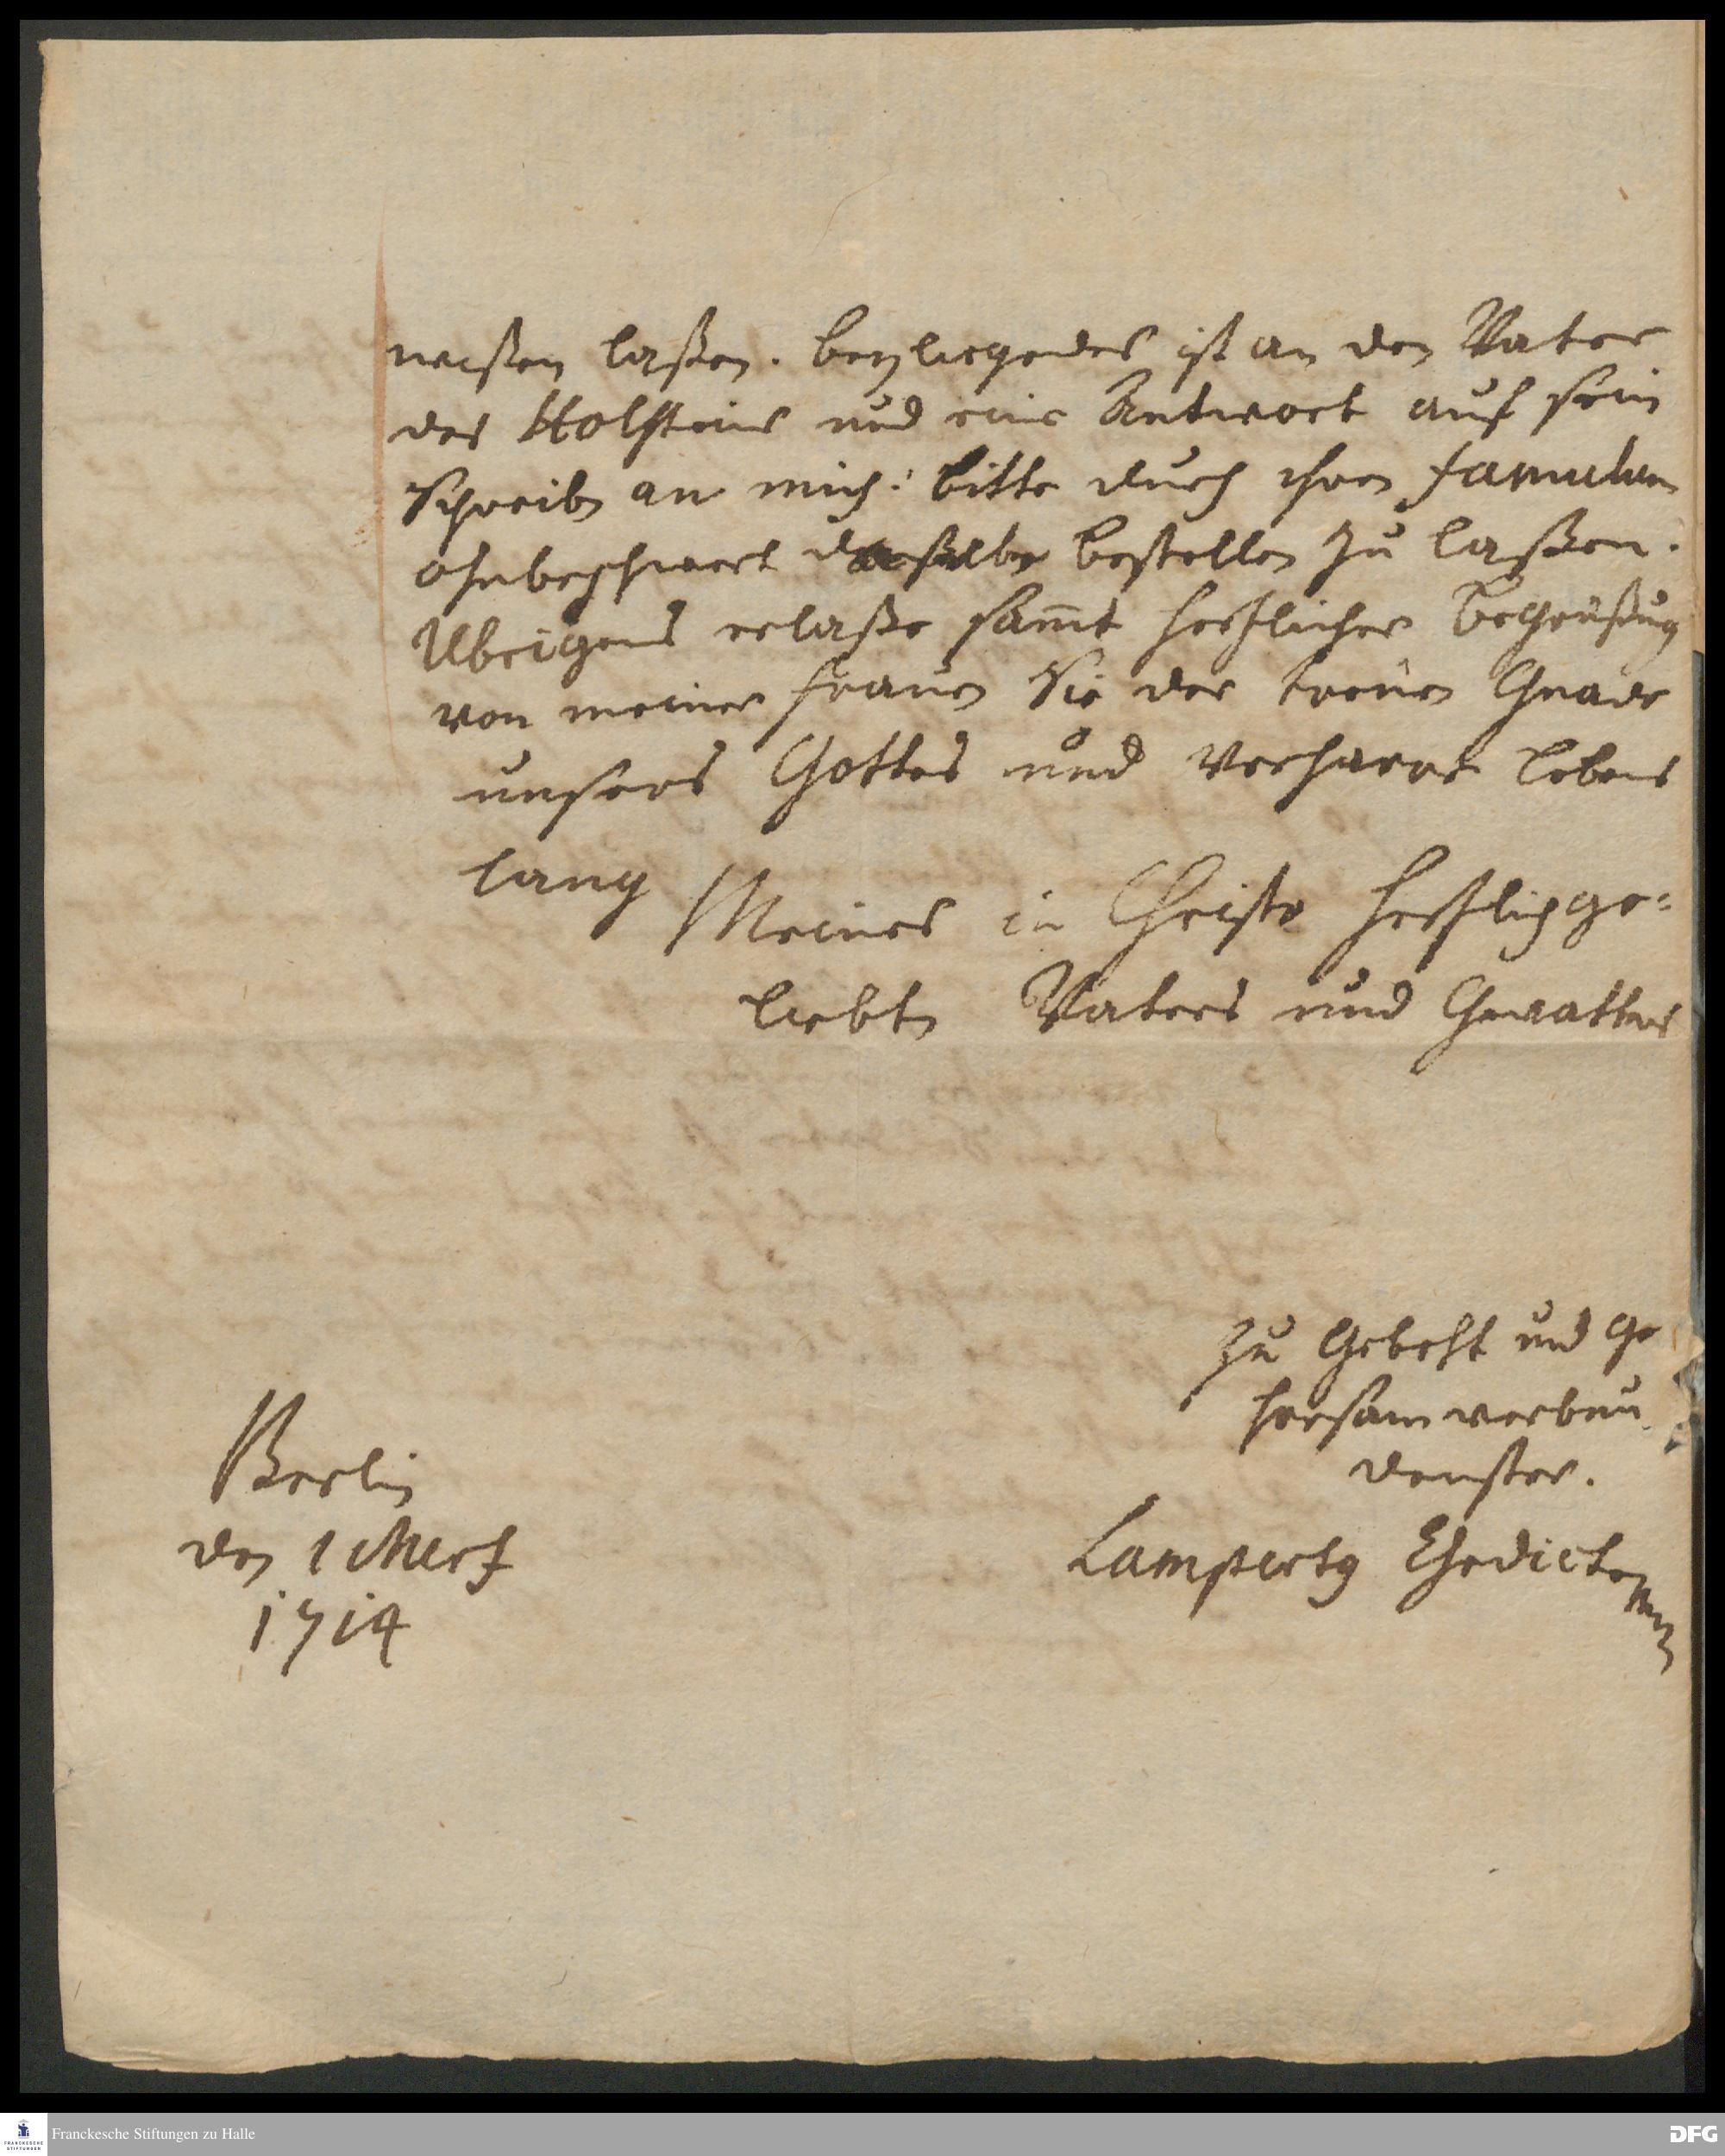 wißen laßen. beyliegendes ist an den Vater
des Holsteins und eine Antwort auf sein
Schreiben an mich: bitte durch ihren famulum
ohnbeschwert daßelbe bestellen zu laßen.
Ubrigens erlaße samt hertzlicher Begrüßung
von meiner frauen Sie der treuen Gnade
unsers Gottes und verharre lebens
lang
Meines in Christo hertzlichge=
liebten Vaters und Gevatters
zu Gebeht und Ge
horsam verbun
denster.
Berlin
den 1 Mertz
1714
Lampertg Gedicke
Franckesche Stiftungen zu Halle
FRANCKESCHE
STIFTUNGEN
DFG